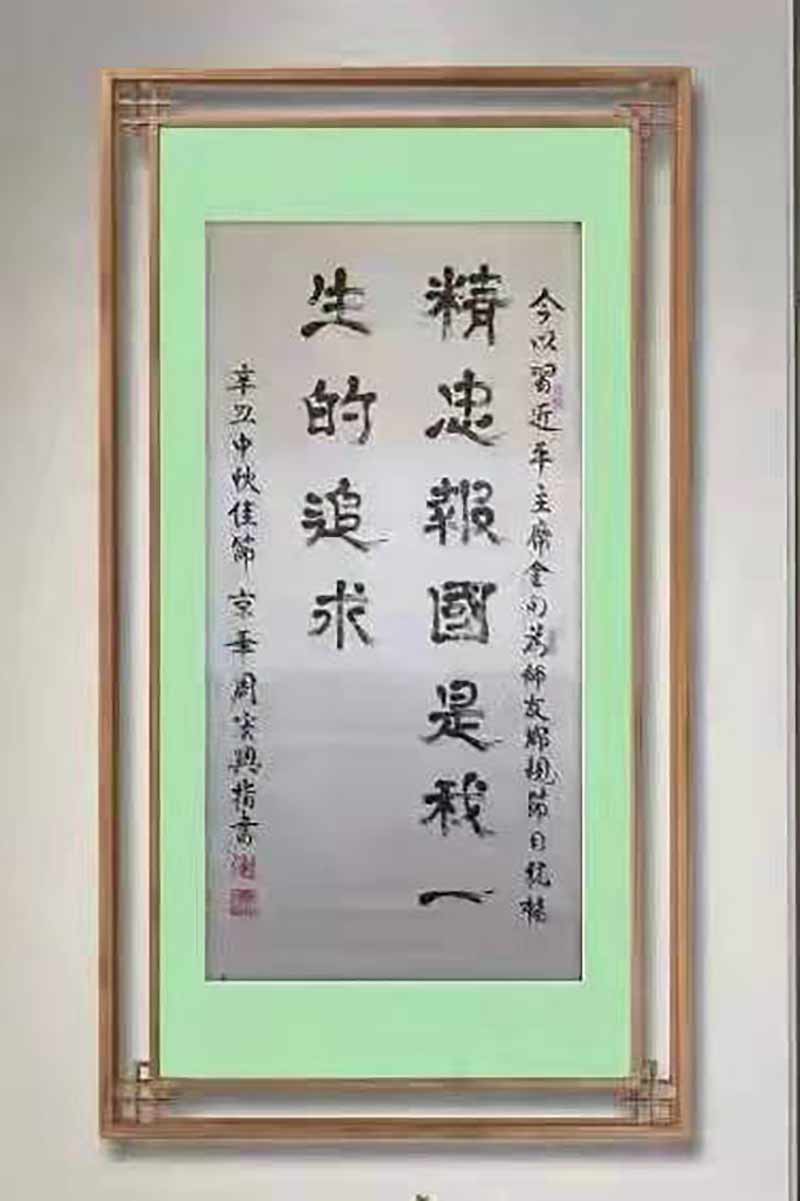 今以習近平主席金句為師友鄉親節日祝福
精忠報國是我一
生的追求
辛丑中秋佳節京華周寶興指書